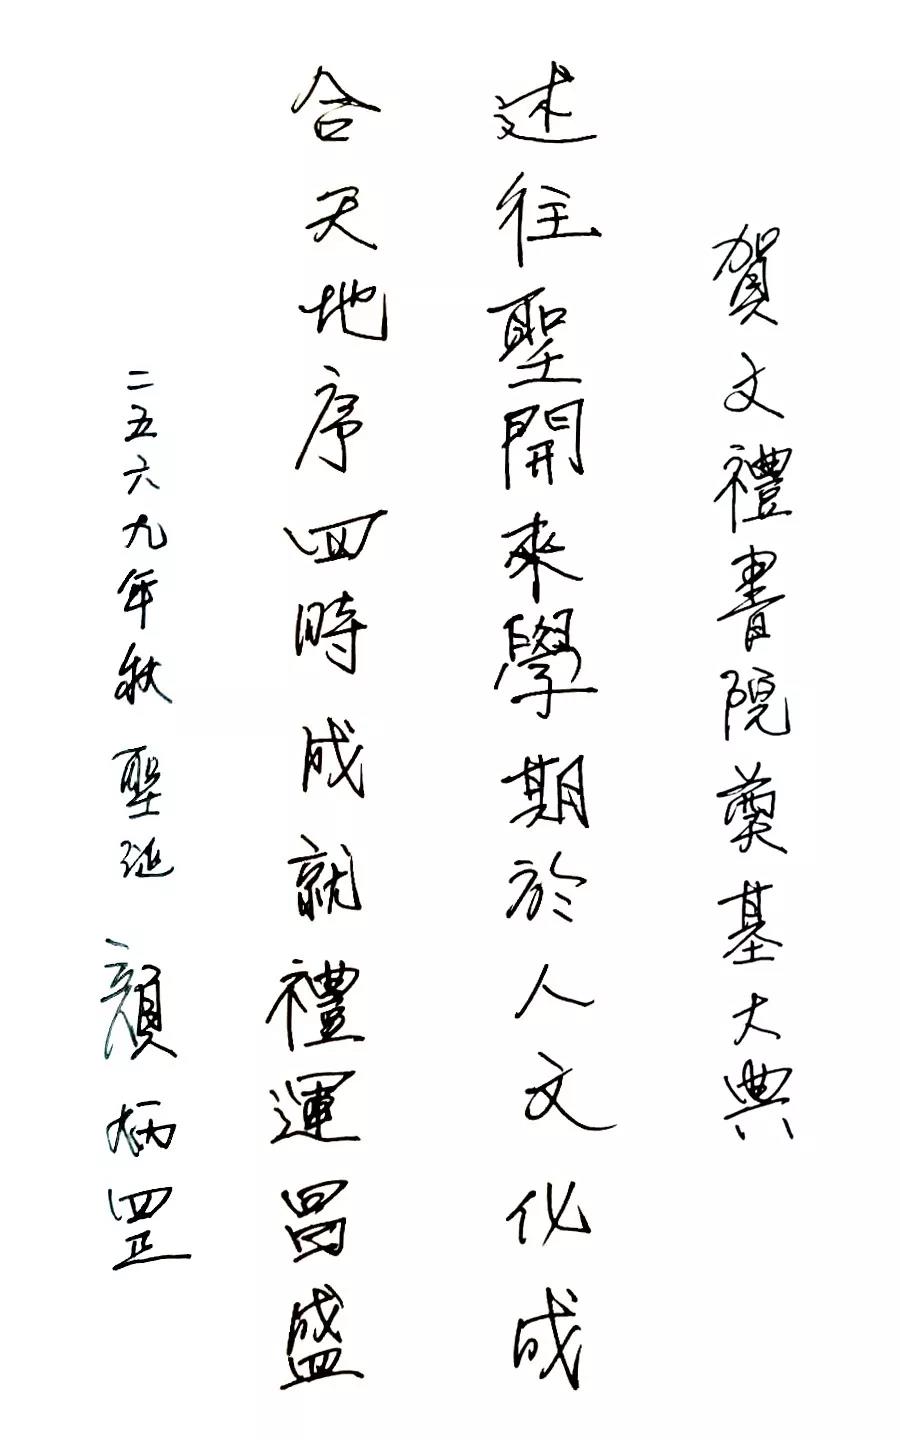 賀文禮書院奠基大典
述往聖開來學期於人文化成
合天地序四時成就禮運昌盛
二五六九年秋 聖誕 顏炳罡